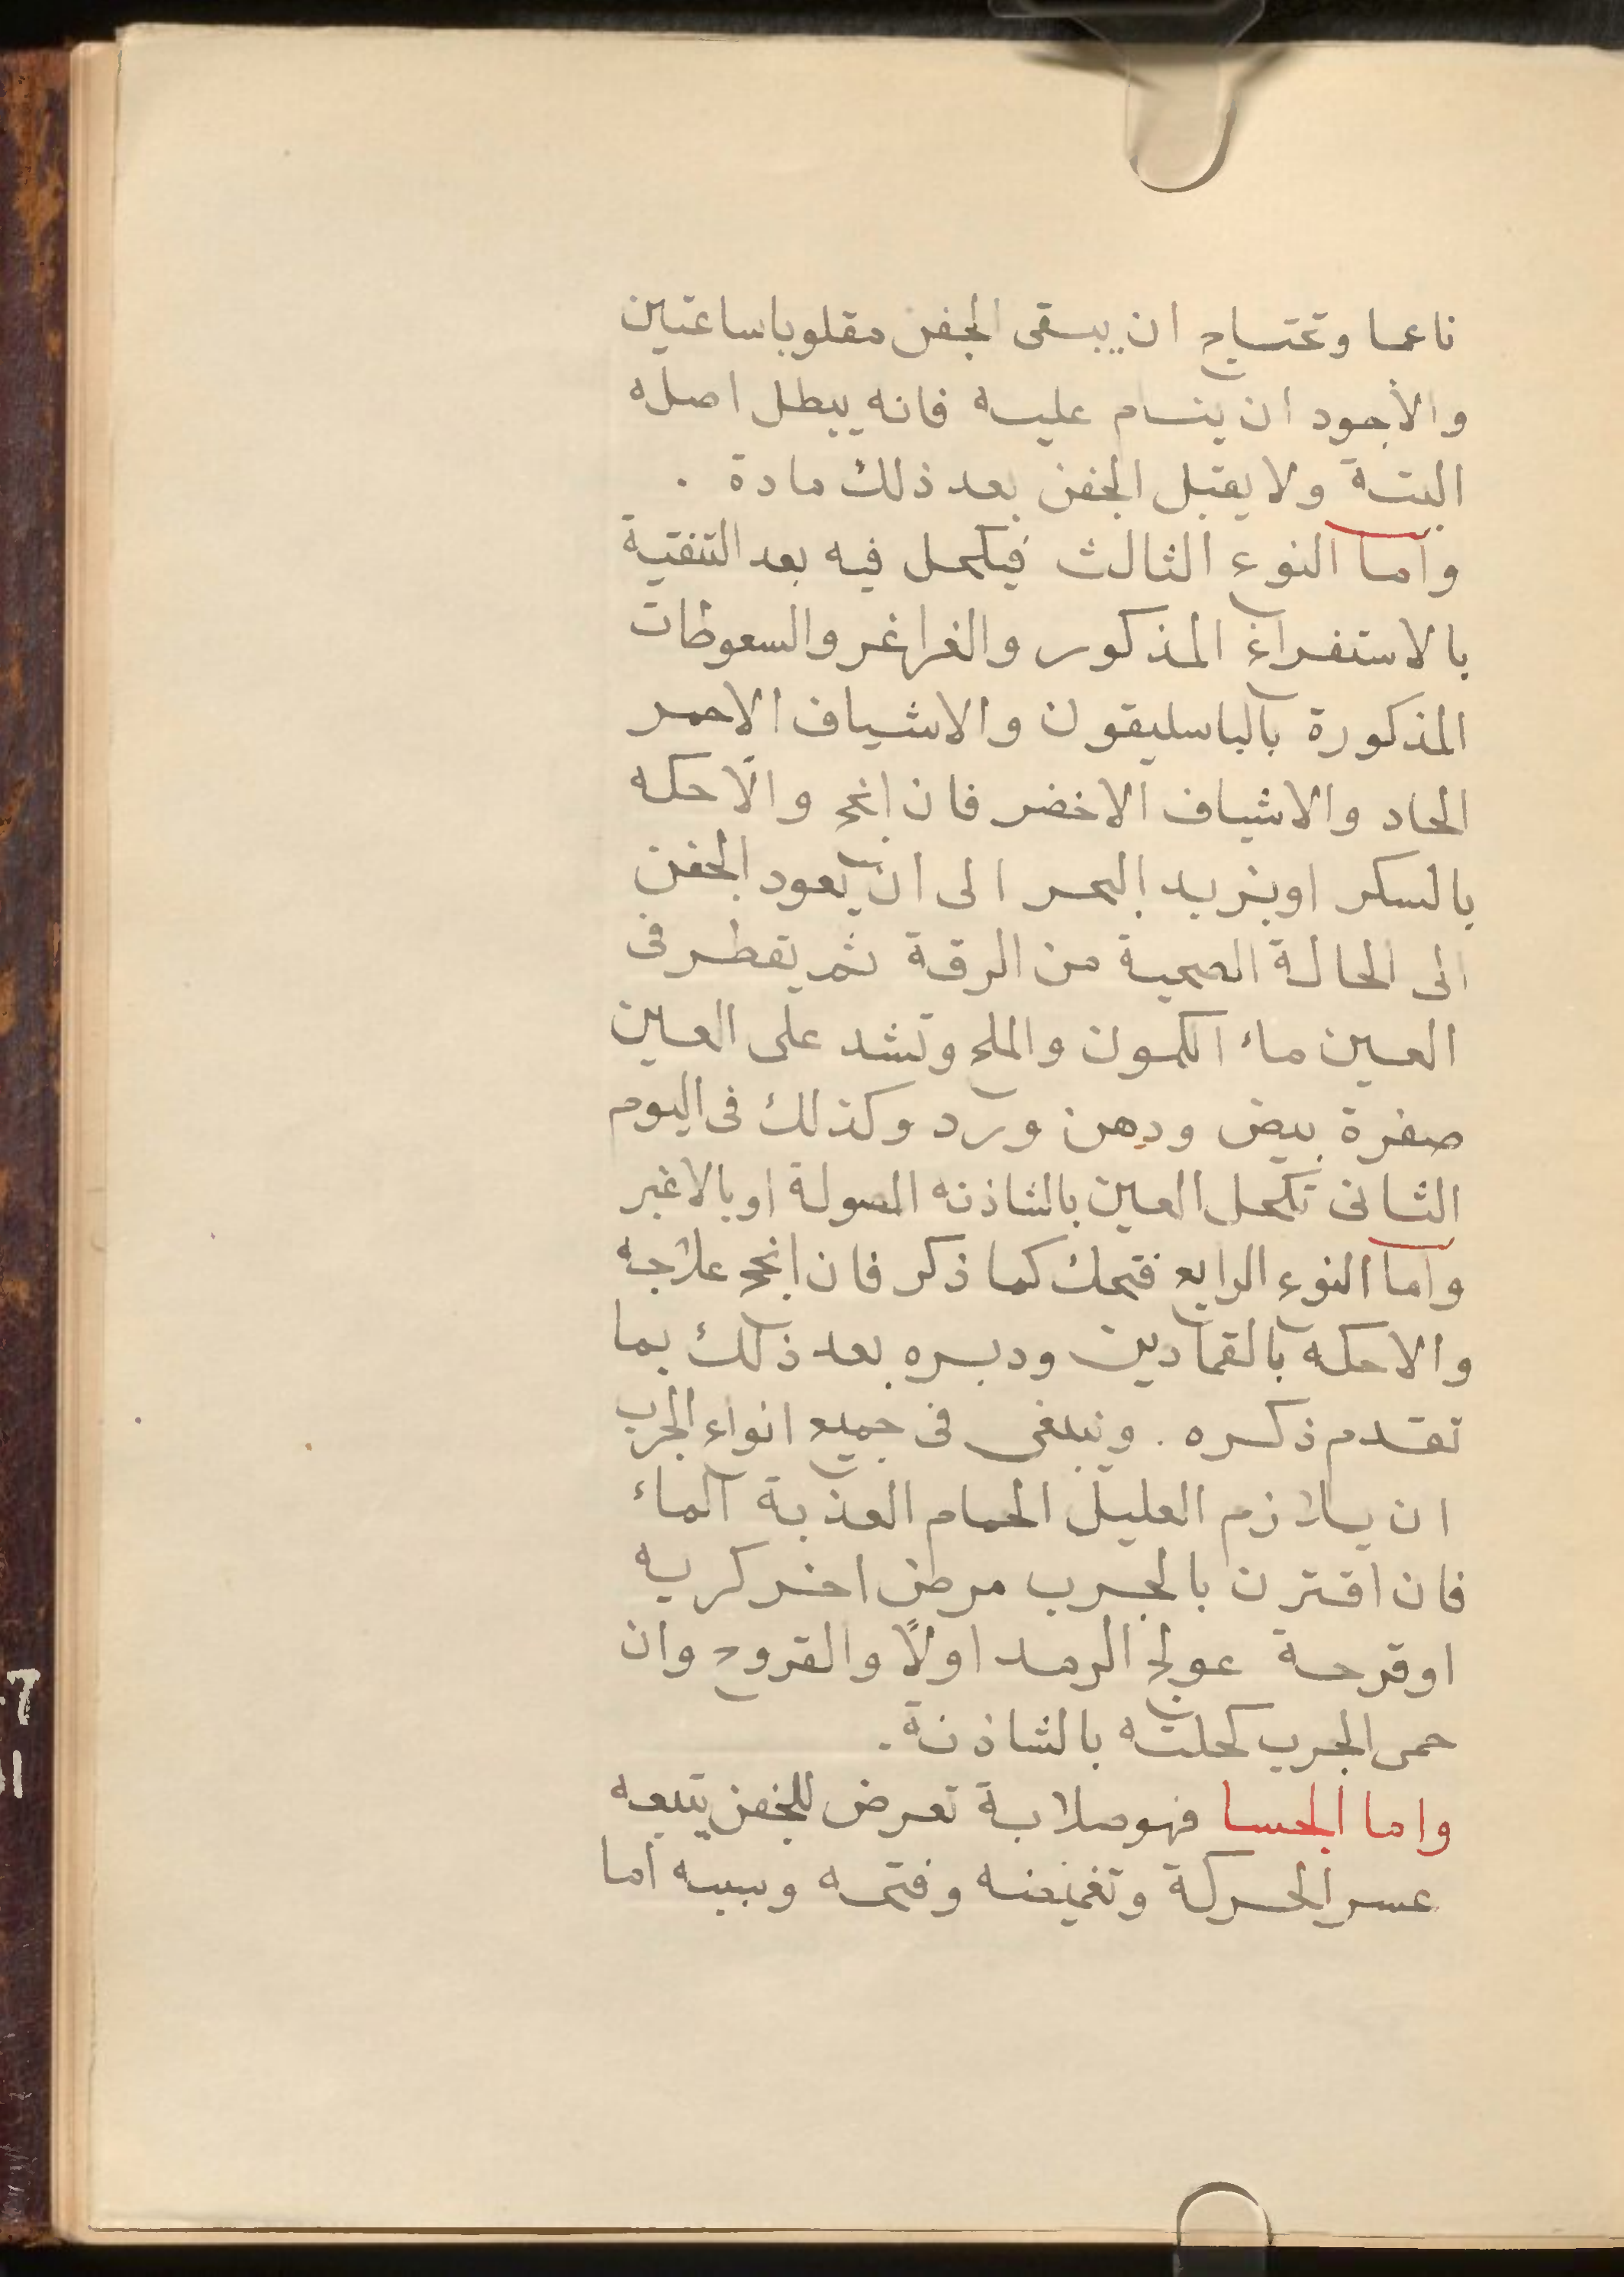 ناعما وتحتاج ان يبقى الجفن مقلوبا ساعتين
والأجود ان ينام عليه فانه يبطل اصله
البتة ولا يقبل الجفن بعد ذلك مادة .
واما النوع الثالث فيكحل فيه بعد التنقية
بالاستفراغ المذكور والغراغر والسعوطات
المذكورة بالباسليقون والاشياف الاحمر
الحاد والاشياف الاخضر فان انجح والّا حكه
بالسكر او بزبد البحر الى ان يعود الجفن
الى الحالة الصحية من الرقة ثم يقطر فى
العين ماء الكمون والملح وتشد على العين
صفرة بيض ودهن ورد وكذلك فى اليوم
الثانى تكحل العين بالشاذنه المصولة او بالاغبر
واما النوع الرابع فتحك كما ذكر فان انجح علاجه
والا حكه بالقمادين ودبره بعد ذلك بما
تقدم ذكره . وينبغى فى جميع انواع الجرب
ان يلازم العليل الحمام العذبة الماء
فان اقترن بالجرب مرض اخر كريه
او قرحة عولج الرمد اولًا والقروح وان
حمى الجرب كحلته بالشاذنة .
واما الجسا فهو صلابة تعرض للجفن يتبعه
عسر الحركة وتغميضه وفتحه وسببه اما